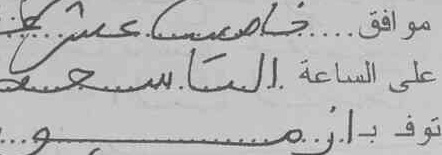 موافق .... خامس عشر
على الساعة التاسعة
توف ب ازمو